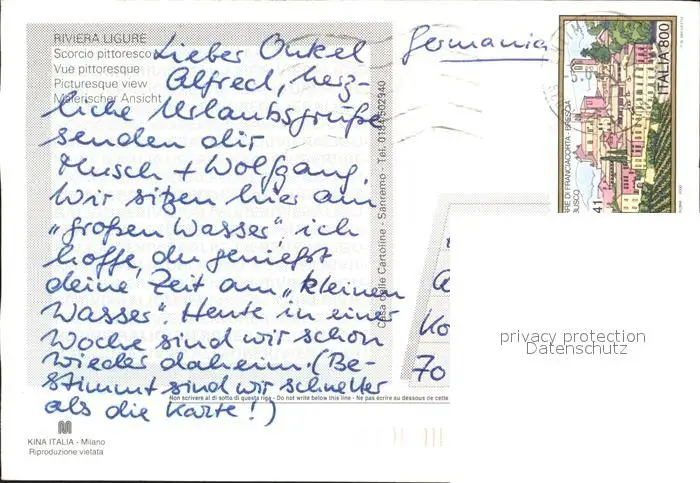 RIVIERA LIGURE
Scorcio pittoresco
Vue pittoresque
Picturesque view
Malerischer Ansicht
Lieber Onkel
Alfred, herz-
liche Urlaubsgrüße
senden dir
Musch + Wolfgang.
Wir sitzen hier am
"großen Wasser", ich
hoffe, du genießt
deine Zeit am "kleinen
Wasser". Heute in einer
Woche sind wir schon
wieder daheim. (Be-
stimmt sind wir schneller
als die Karte!)
Germania
ITALIA 800
RE DI FRANCIACORTA - BRESCIA
BUSCO
41
Casa delle Cartoline - Sanremo - Tel. 0184/502940
Ko
70
privacy protection
Datenschutz
Non scrivere al di sotto di questa riga - Do not write below this line - Ne pas écrire au dessous de cette
KINA ITALIA - Milano
Riproduzione vietata